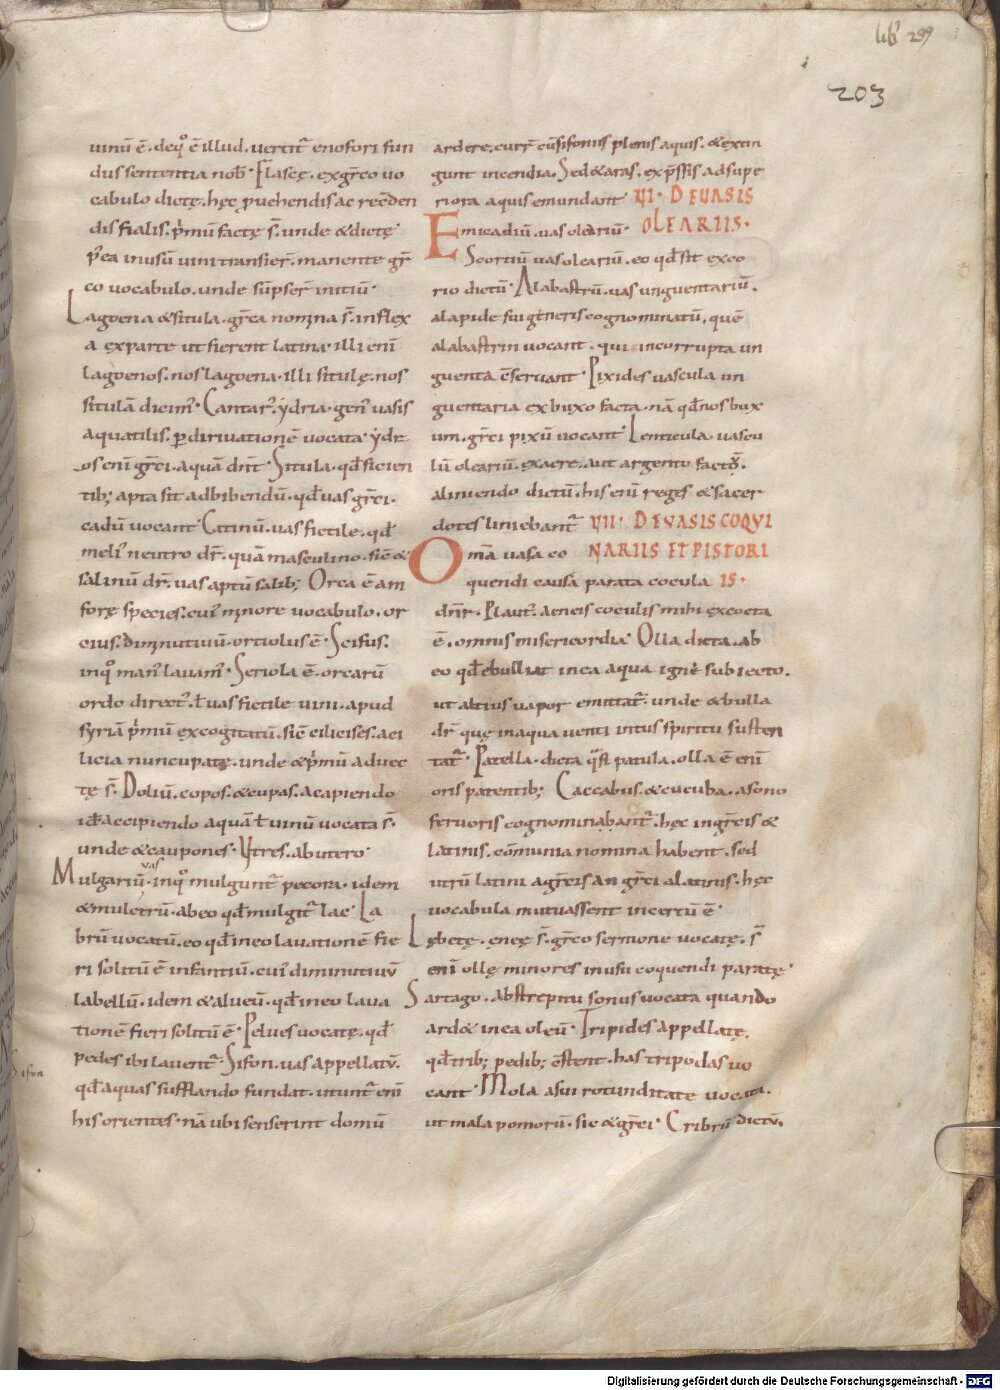 lib 299
203
uinū ē. deqͦ ē illud. uertit̄ enofori fun
dus sententia nob̄. Flascę. ex gr̄eco uo
cabulo dictę. hęc ꝓ uehendis ac recēden
dis fialis. p̄mū factę s̄. unde & dictę
p̄ea in usū uini transier̄. manente gr̄
co uocabulo. unde sūpser̄ initiū.
Lagoena & situla. gr̄ca nomina s̄. inflex
a ex parte ut fierent latina. illi eni
lagoenos. nos lagoena. illi situlę. nos
situlā dicim̄. Cantar̄. ydria. gen̄ uasis
aquatilis. ꝑ diriuationē uocata. ydr
os eni gr̄ci. aquā dn̄t. Situla. qd̄ sicien
tib; apta sit ad bibendū. qd̄ uas gr̄ci.
cadū uocant. Catinū. uas fictile. qd̄
meli᾽ neutro dr̄. quā masculino. sic̄ &
salinū dr̄. uas aptū salib; Orca ē am
forę species. cui᾽ minore uocabulo. or
cius. diminutiuū. ortiolus ē. Scifus.
in qͦ man᾽ lauam̄. Seriola ē. orcarū
ordo direct᾽. ł uas fictile uini. apud
syriā p̄mū excogitatū. sic̄ cilicises. aci
licia nuncupatę. unde & p̄mū aduec
tę s̄. Doliū. copos. & cupas. a capiendo
id̄ accipiendo aquā ł uinū uocata s̄.
unde & caupones. Vtres. ab utero
uas
Mulgariū. in qͦ mulgunt̄ pecora. idem
& muletrū. ab eo qd̄ mulgit̄ lac. La
brū uocatū. eo qd̄ in eo lauationē fie
ri solitū ē infantiū. cui᾽ diminutiuū
labellū. idem & alueū. qd̄ in eo laua
tionē fieri solitū ē. Pelues uocatę. qd̄
pedes ibi lauent̄. Sifon. uas appellatū.
Sifon
qd̄ aquas sufflando fundat. utunt̄ eni
his orientes. nā ubi senserint domū
ardere. curr̄ cū sifonis plenis aquis. & extin
gunt incendia. Sed & aras. exp̄ssis ad supe
riora aquis emundant. VI. DE VASIS
OLEARIIS.
Emicadiū. uas oleariū.
Scortiū uas oleariū. eo qd̄ sit ex co
rio dictū. Alabastrū. uas unguentariū.
a lapide sui generis cognominatū. quē
alabastrin uocant. qui incorrupta un
guenta c̄seruant. Pixides uascula un
guentaria ex buxo facta. nā qd̄ nos bux
um. gr̄ci pixū uocant. Lenticula. uascu
lū oleariū. ex aere. aut argento factū.
a liniendo dictū. his eni reges & sacer
dotes liniebant̄. VII. DE VASIS COQVI
NARIIS ET PISTORI
IS.
Omā uasa co
quendi causa parata cocula
dn̄r. Plaut᾽. aeneis coculis mihi excocta
ē. omnis misericordia. Olla dicta. ab
eo qd̄ ebulliat in ea aqua igne subiecto.
ut altius uapor emittat̄. unde & bulla
dr̄ quę in aqua uenti intus spiritu susten
tat̄. Patella. dicta q̄si patula. olla ē eni
oris patentib; Caccabus. & cucuba. a sono
feruoris cognominabant̄. hęc in gr̄cis &
latinis. cōmunia nomina habent. sed
utrū latini a gr̄cis an gr̄ci a latinis. hęc
uocabula mutuassent incertū ē.
Lębetę. eneę s̄. gr̄co sermone uocatę. s̄
eni ollę minores in usu coquendi paratę
Sartago. ab strepitu sonus uocata quando
ard& in ea oleū. Tripides appellatę.
qd̄ trib; pedib; c̄stent. has tripodas uo
cant. Mola a sui rotunditate uocata.
ut mala pomorū. sic & gr̄ci. Cribrū dictū.
Digitalisierung gefördert durch die Deutsche Forschungsgemeinschaft - DFG